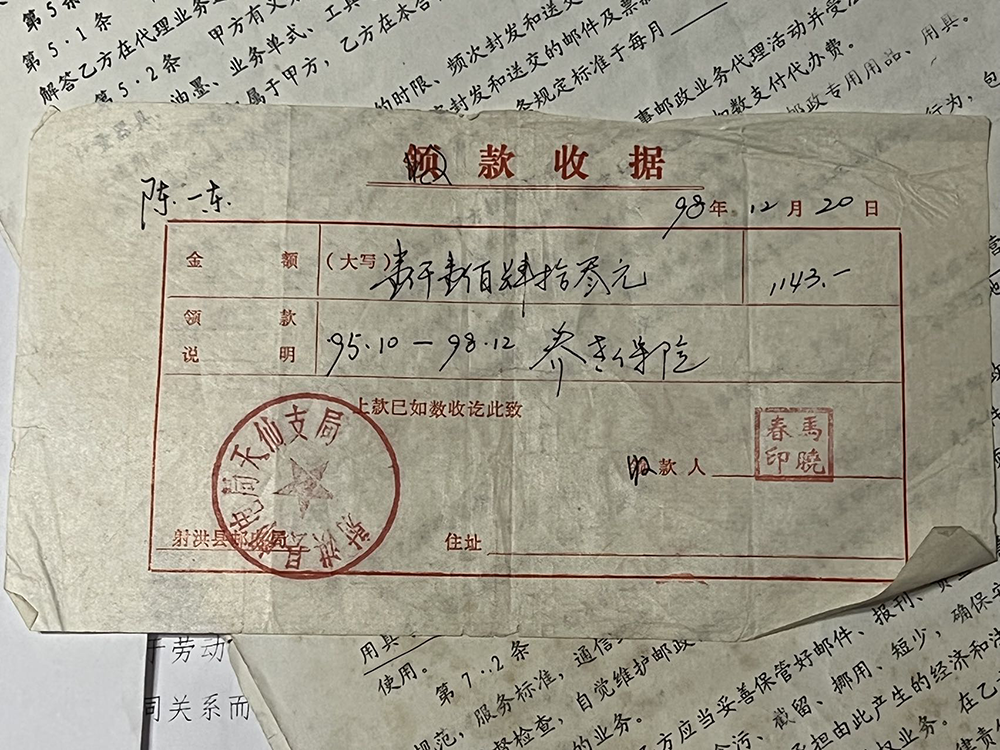 第5·1条
解答乙方在代理业务
第5·2条
油墨、业务单式、工具
属于甲方,
乙方在本合
的时限、频次封发和送交
封发和送交的邮件及票款
条规定标准于每月
邮政业务代理活动并受法
如数支付代办费。
邮政专用用品、用具。
行为,包
收款收据
陈一东
98年12月20日
金额(大写)壹仟壹佰肆拾叁元 1143.-
领款
说明 95.10—98.12 养老保险
上款已如数收讫此致
射洪县邮电局天仙支局
马晓春印
收款人
射洪县邮电局
住址
劳动
同关系而
用具
使用。
第7·2条
服务标准,通信
规范,自觉维护邮政
督检查,
的业务。
方应当妥善保管好邮件、报刊、
贪污、截留、挪用、短少,确保
承担由此产生的经济和法
业务。在乙